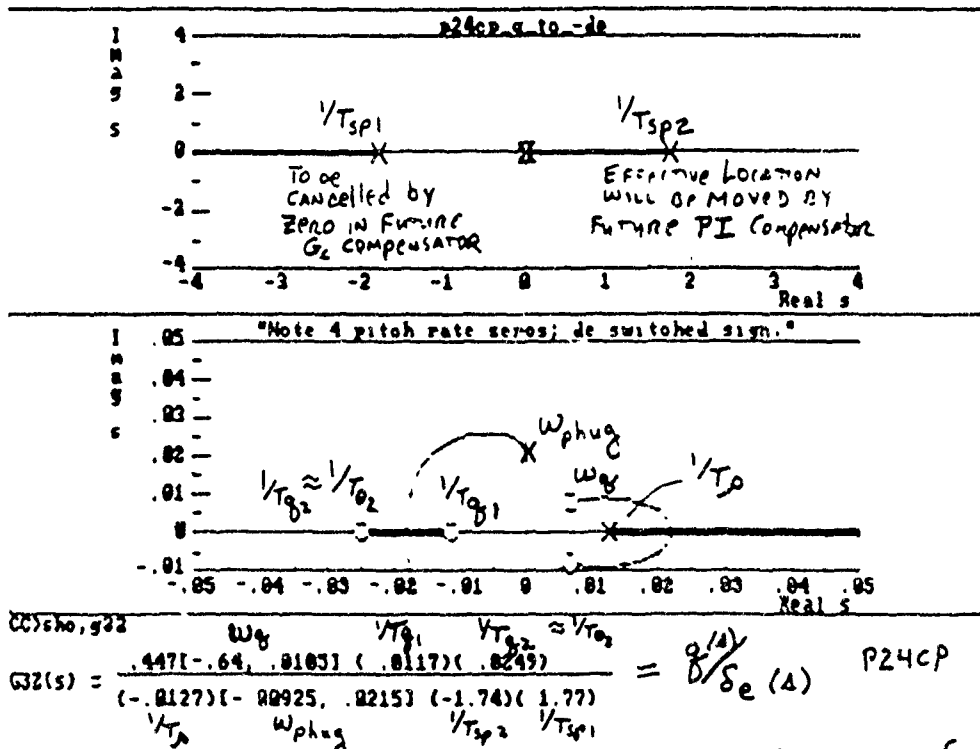 p24cp_q_to_-de
Imag s
4
2
0
-2
-4
1/Tsp1
1/Tsp2
To be
CANCELLED by
ZERO IN FUTURE
G_c COMPENSATOR
EFFECTIVE LOCATION
WILL BE MOVED BY
FUTURE PI COMPENSATOR
-4 -3 -2 -1 0 1 2 3 4
Real s
"Note 4 pitch rate zeros; de switched sign."
Imag s
.05
.04
.03
.02
.01
0
-.01
ωphug
1/Tq2 ≈ 1/Tθ2
1/Tq1
ωq
-.05 -.04 -.03 -.02 -.01 0 .01 .02 .03 .04 .05
Real s
CC>sho,g32
ωq 1/Tq1 1/Tq2 ≈ 1/Tθ2
.447[-.64, .0105] ( .0117)( .0249)
G32(s) = = q(s)/δe (s) P24CP
(-.0127)[-.00925, .0215] (-1.74)( 1.77)
ωphug 1/Tsp2 1/Tsp1